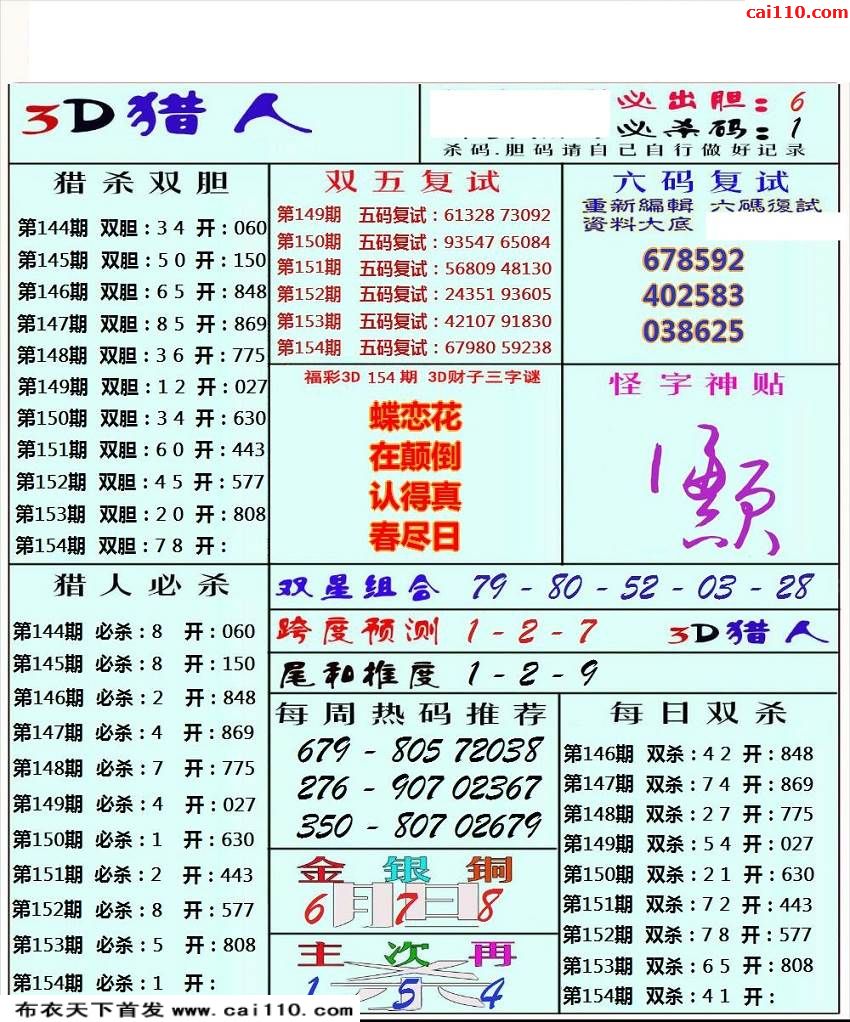 cai110.com
3D猎人
必出胆：6
必杀码：1
杀码.胆码请自己自行做好记录
猎杀双胆
第144期 双胆：3 4 开：060
第145期 双胆：5 0 开：150
第146期 双胆：6 5 开：848
第147期 双胆：8 5 开：869
第148期 双胆：3 6 开：775
第149期 双胆：1 2 开：027
第150期 双胆：3 4 开：630
第151期 双胆：6 0 开：443
第152期 双胆：4 5 开：577
第153期 双胆：2 0 开：808
第154期 双胆：7 8 开：
双五复试
第149期 五码复试：61328 73092
第150期 五码复试：93547 65084
第151期 五码复试：56809 48130
第152期 五码复试：24351 93605
第153期 五码复试：42107 91830
第154期 五码复试：67980 59238
六码复试
重新編輯 六碼復試
資料大底
678592
402583
038625
福彩3D 154期 3D财子三字谜
蝶恋花
在颠倒
认得真
春尽日
怪字神贴
猎人必杀
第144期 必杀：8 开：060
第145期 必杀：8 开：150
第146期 必杀：2 开：848
第147期 必杀：4 开：869
第148期 必杀：7 开：775
第149期 必杀：4 开：027
第150期 必杀：1 开：630
第151期 必杀：2 开：443
第152期 必杀：8 开：577
第153期 必杀：5 开：808
第154期 必杀：1 开：
双星组合 79 - 80 - 52 - 03 - 28
跨度预测 1 - 2 - 7 3D猎人
尾和推度 1 - 2 - 9
每周热码推荐
679 - 805 72038
276 - 907 02367
350 - 807 02679
金 银 铜
6 7 8
主 次 再
1 5 4
每日双杀
第146期 双杀：4 2 开：848
第147期 双杀：7 4 开：869
第148期 双杀：2 7 开：775
第149期 双杀：5 4 开：027
第150期 双杀：2 1 开：630
第151期 双杀：7 2 开：443
第152期 双杀：7 8 开：577
第153期 双杀：6 5 开：808
第154期 双杀：4 1 开：
布衣天下首发 www.cai110.com